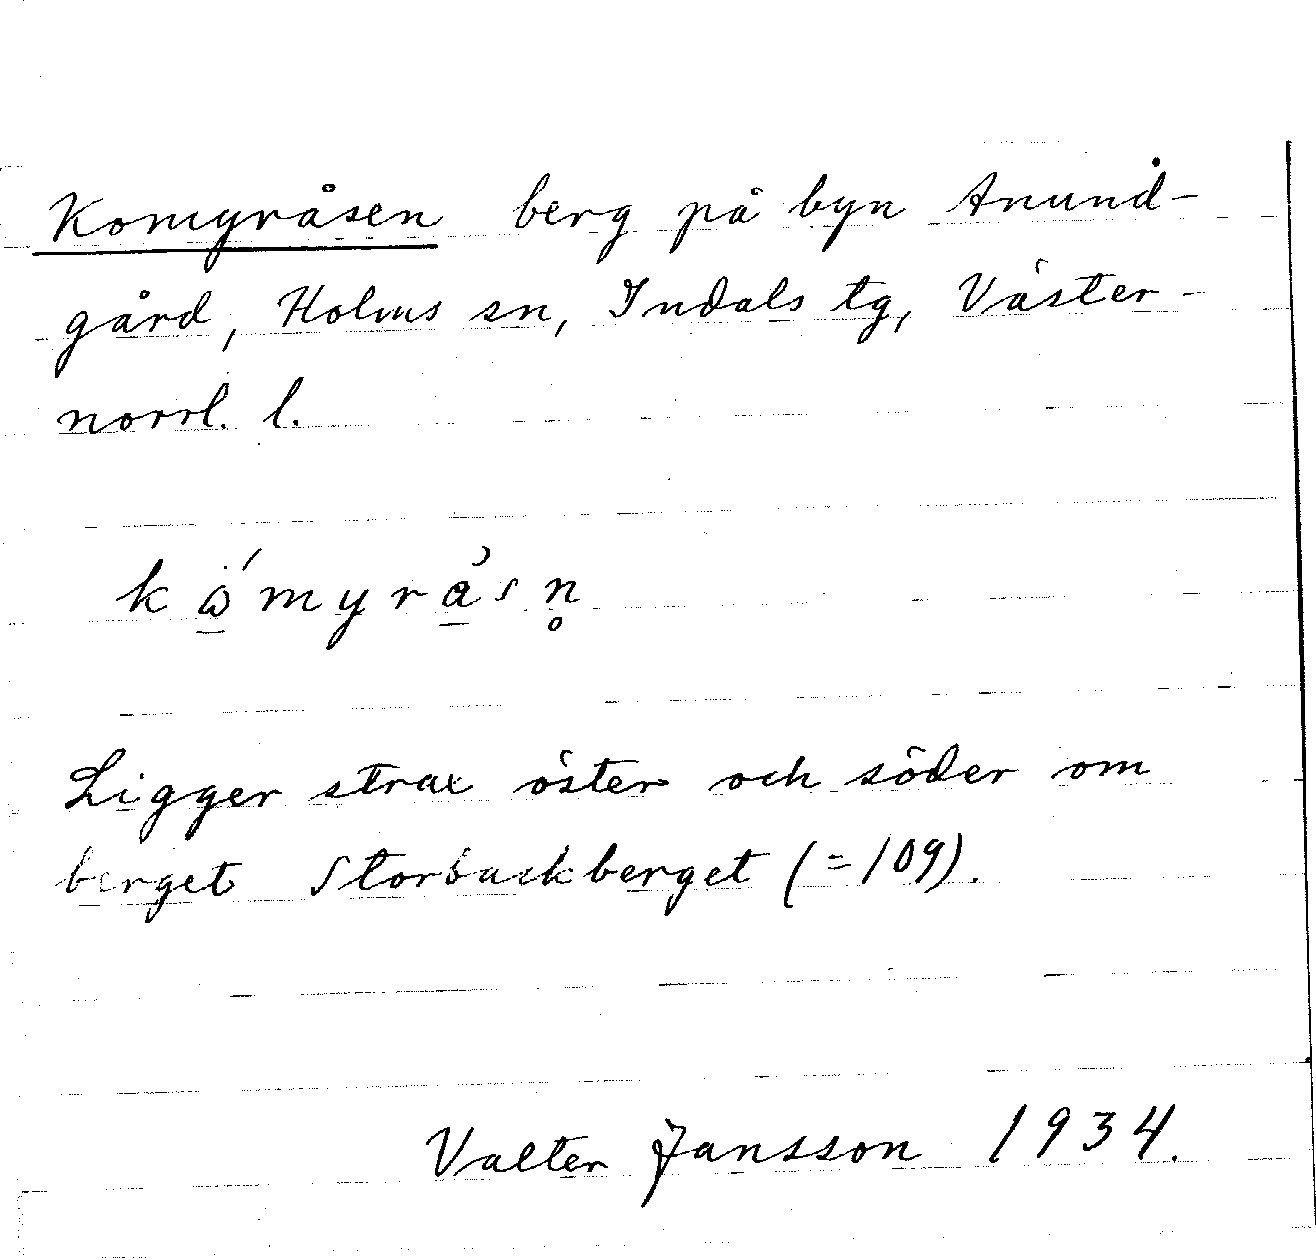 Komyråsen berg på byn Anund-
gård, Holms sn, Indals tg, Väster-
norrl. l.
kǻmyràsn̥
Ligger strax öster och söder om
berget Storbackberget (=109).
Valter Jansson 1934.